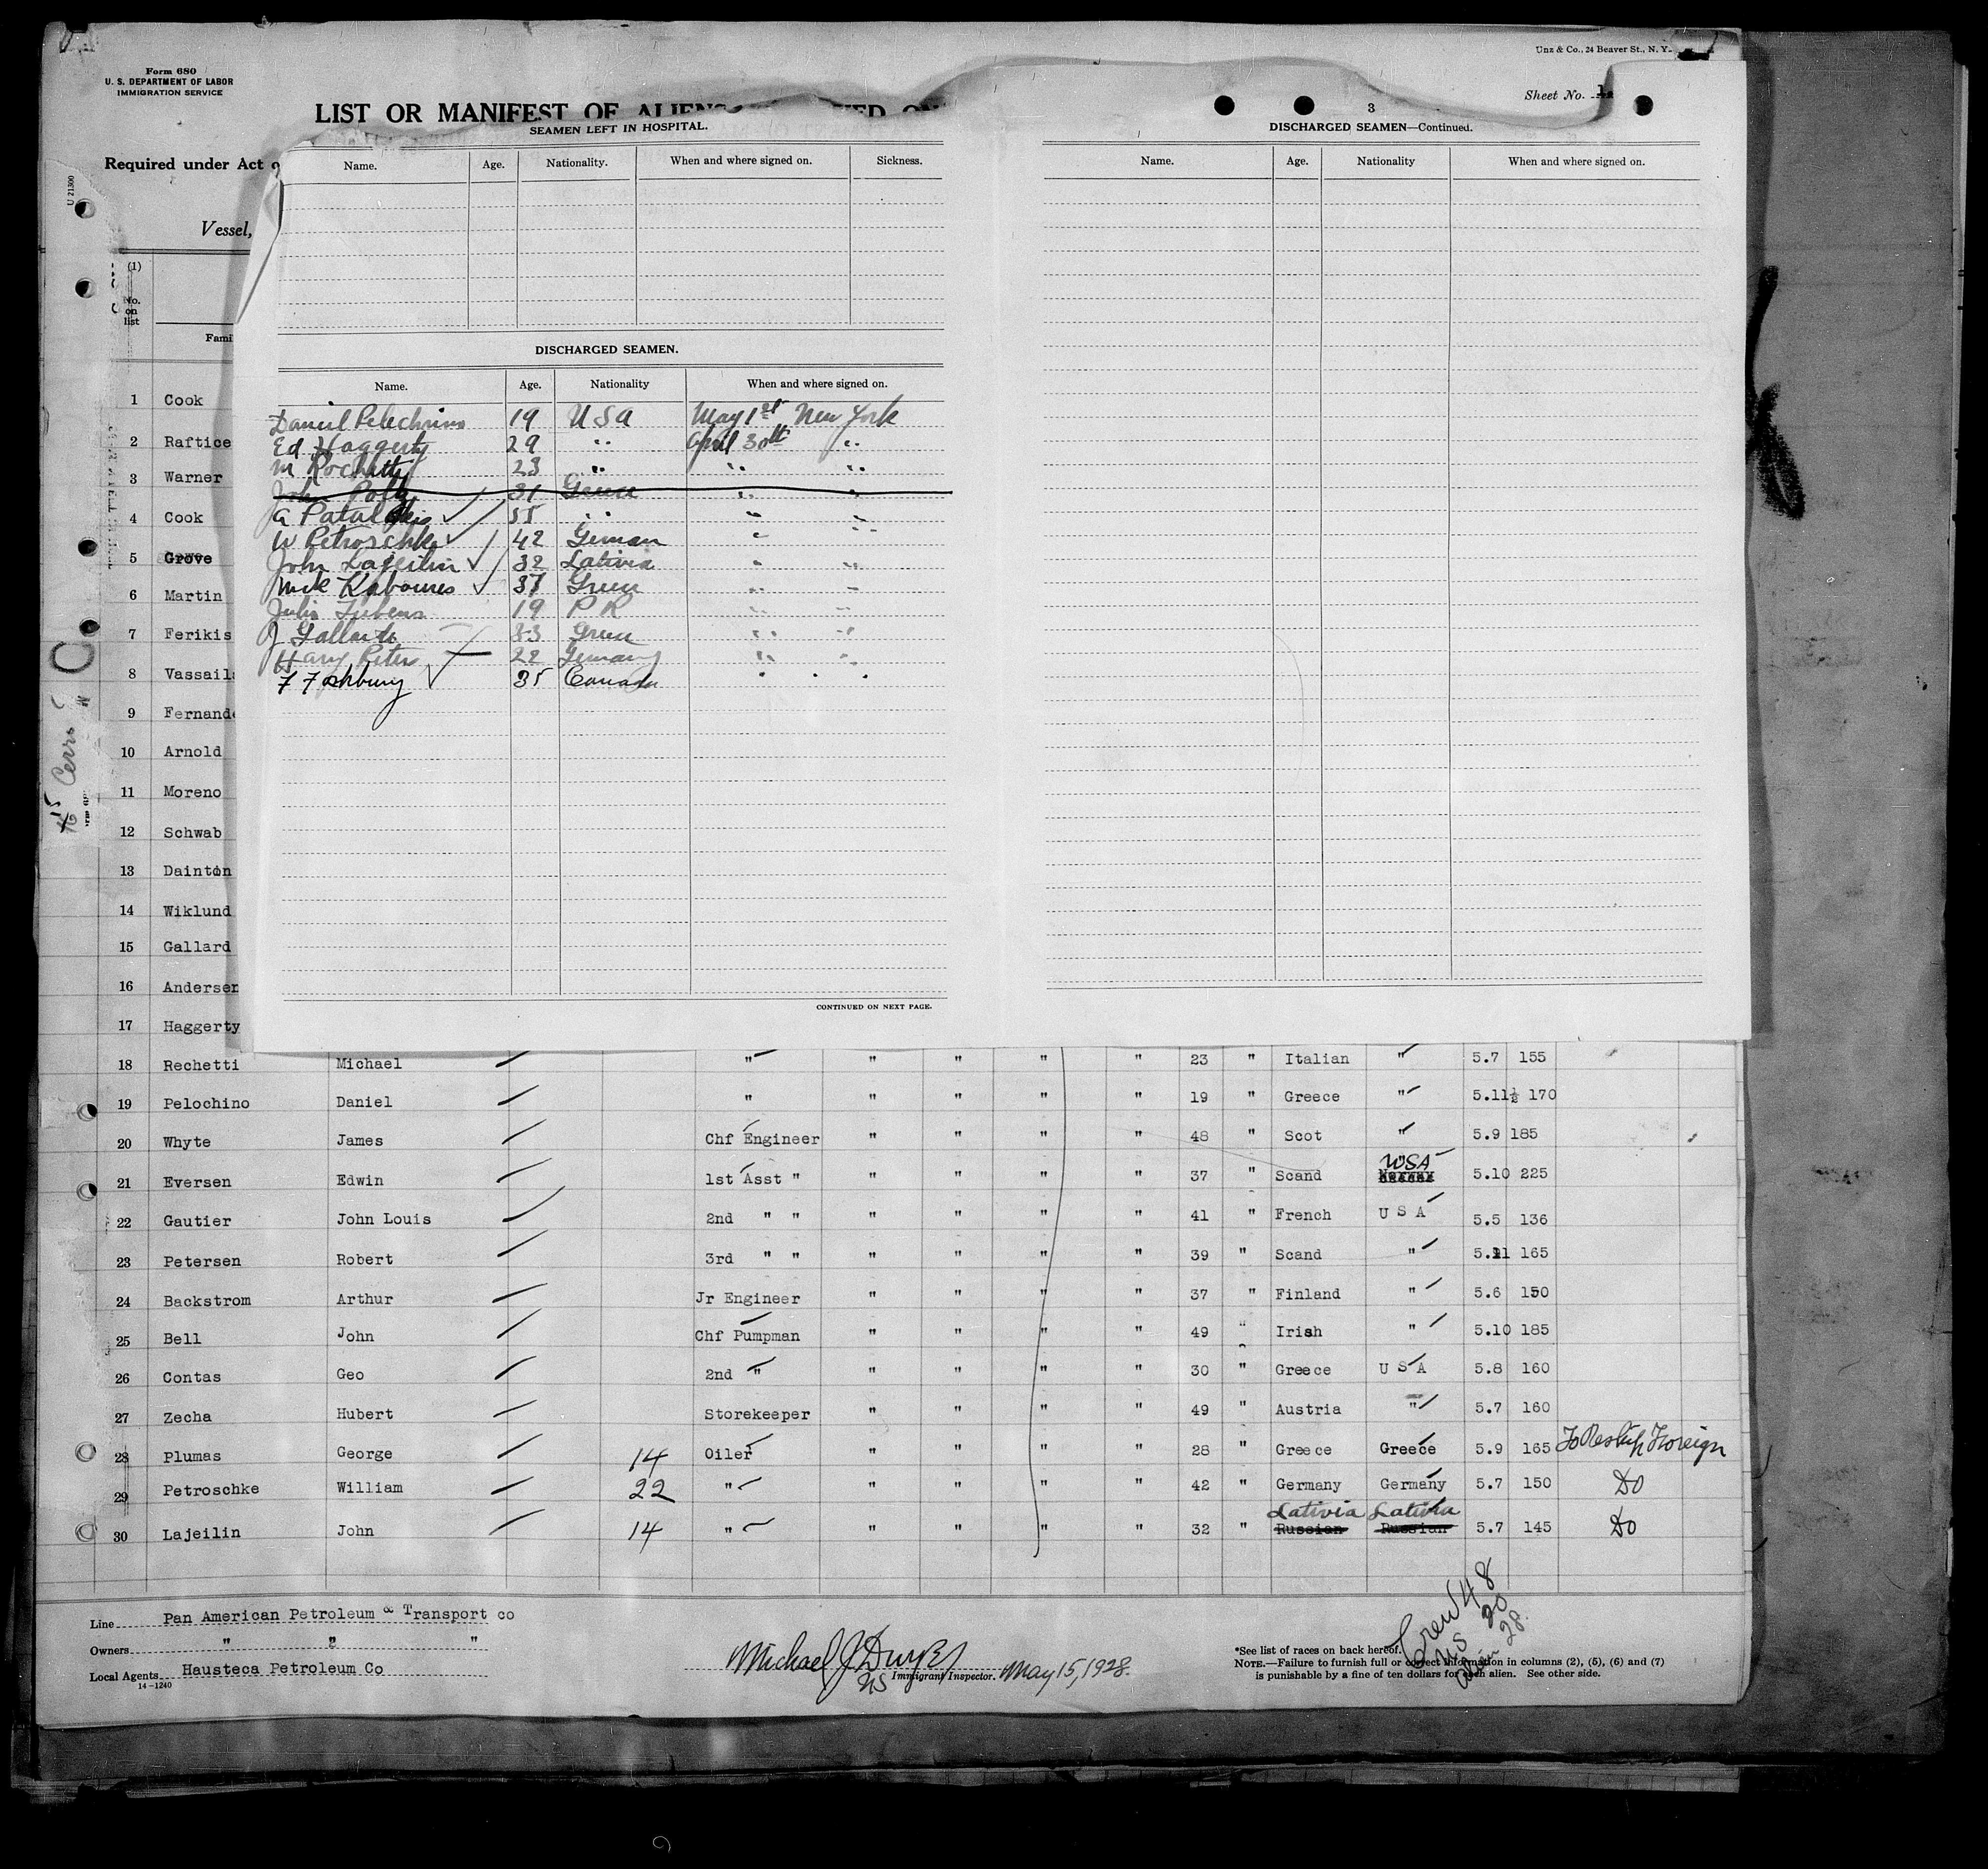 Unz & Co., 24 Beaver St., N. Y.
Form 680
U. S. DEPARTMENT OF LABOR
IMMIGRATION SERVICE
Sheet No. 1
LIST OR MANIFEST OF ALIENS
Required under Act
U 21300
Vessel,
(1)
No. on list
Fami
SEAMEN LEFT IN HOSPITAL.
Name. Age. Nationality. When and where signed on. Sickness.
DISCHARGED SEAMEN.
Name. Age. Nationality When and where signed on.
Daniel Pelechino 19 USA May 1st New York
Ed Haggerty 29 " April 30th "
M Rochetty 23 " " "
John Poly 31 Greece " "
G 55 " " "
W Petroschke 42 German "
John Lajeilin 32 Lativia " "
Mike Kaboures 37 Greece " "
Julio 19 P R " "
J Gallardo 33 Greece " "
Harry Peters 22 Germany " "
F Foshbury 35 Canada " "
CONTINUED ON NEXT PAGE.
3
DISCHARGED SEAMEN—Continued.
Name. Age. Nationality When and where signed on.
1 Cook
2 Raftice
3 Warner
4 Cook
5 Grove
6 Martin
7 Ferikis
8 Vassail
9 Fernand
10 Arnold
11 Moreno
12 Schwab
13 Dainton
14 Wiklund
15 Gallard
16 Andersen
17 Haggerty
18 Rechetti Michael " " " " " 23 " Italian " 5.7 155
19 Pelochino Daniel " " " " " 19 " Greece " 5.11½ 170
20 Whyte James Chf Engineer " " " " 48 " Scot " 5.9 185
21 Eversen Edwin 1st Asst " " " " " 37 " Scand USA 5.10 225
22 Gautier John Louis 2nd " " " " " " 41 " French U S A 5.5 136
23 Petersen Robert 3rd " " " " " " 39 " Scand " 5.11 165
24 Backstrom Arthur Jr Engineer " " " " 37 " Finland " 5.6 150
25 Bell John Chf Pumpman " " " " 49 " Irish " 5.10 185
26 Contas Geo 2nd " " " " " 30 " Greece U S A 5.8 160
27 Zecha Hubert Storekeeper " " " " 49 " Austria " 5.7 160
28 Plumas George 14 Oiler " " " " 28 " Greece Greece 5.9 165 To Reship Foreign
29 Petroschke William 22 " " " " " 42 " Germany Germany 5.7 150 Do
30 Lajeilin John 14 " " " " " 32 " Lativia Russian Lativia Russian 5.7 145 Do
Line Pan American Petroleum & Transport co
Owners " " "
Local Agents Hausteca Petroleum Co
14-1240
Michael J Dwyer
US Immigrant Inspector. May 15, 1928.
*See list of races on back hereof.
NOTE.—Failure to furnish full or correct information in columns (2), (5), (6) and (7)
is punishable by a fine of ten dollars for each alien. See other side.
Crew 48
US 20
Alien 28